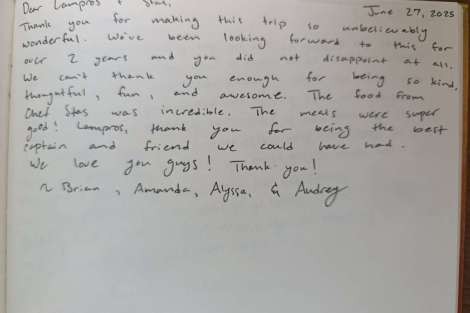 Dear Lampros + Stas,
June 27, 2025
Thank you for making this trip so unbelievably
wonderful. We've been looking forward to this for
over 2 years and you did not disappoint at all.
We can't thank you enough for being so kind,
thoughtful, fun, and awesome. The food from
Chef Stas was incredible. The meals were super
good! Lampros, thank you for being the best
captain and friend we could have had.
We love you guys! Thank you!
~ Brian, Amanda, Alyssa, & Audrey